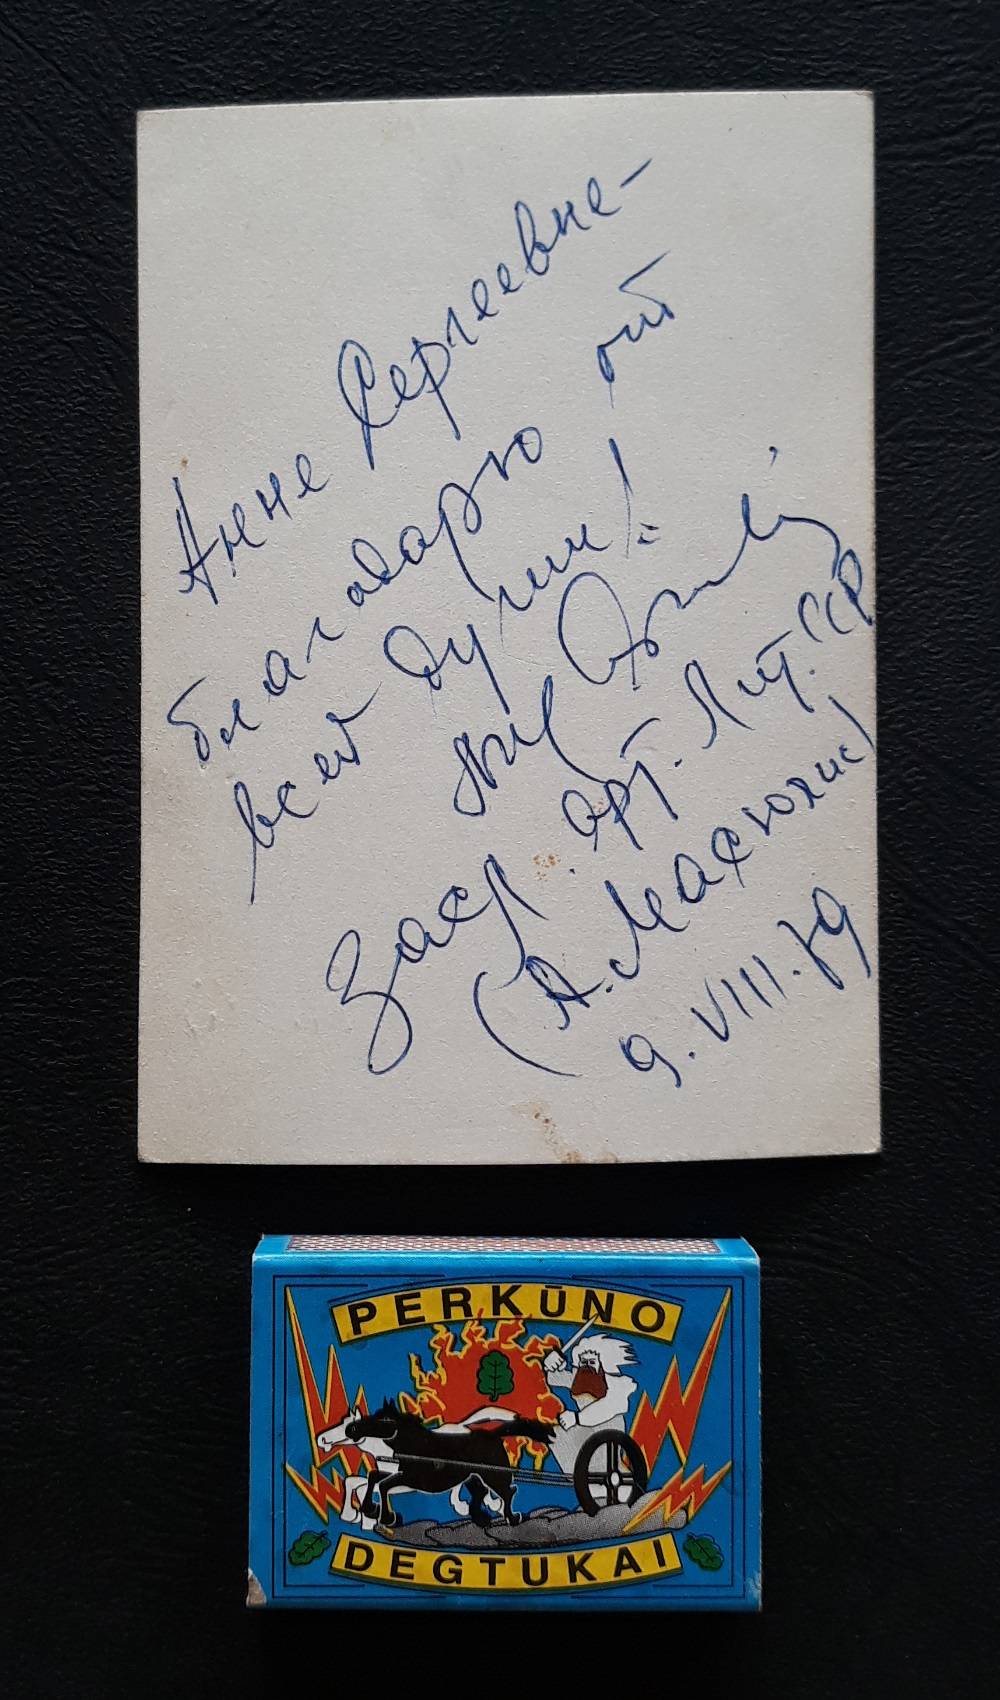 Анне Сергеевне-
благодарю от
всей души!
Засл. арт. Лит. ССР
(А. Масюлис)
9. VIII. 79
PERKŪNO
DEGTUKAI